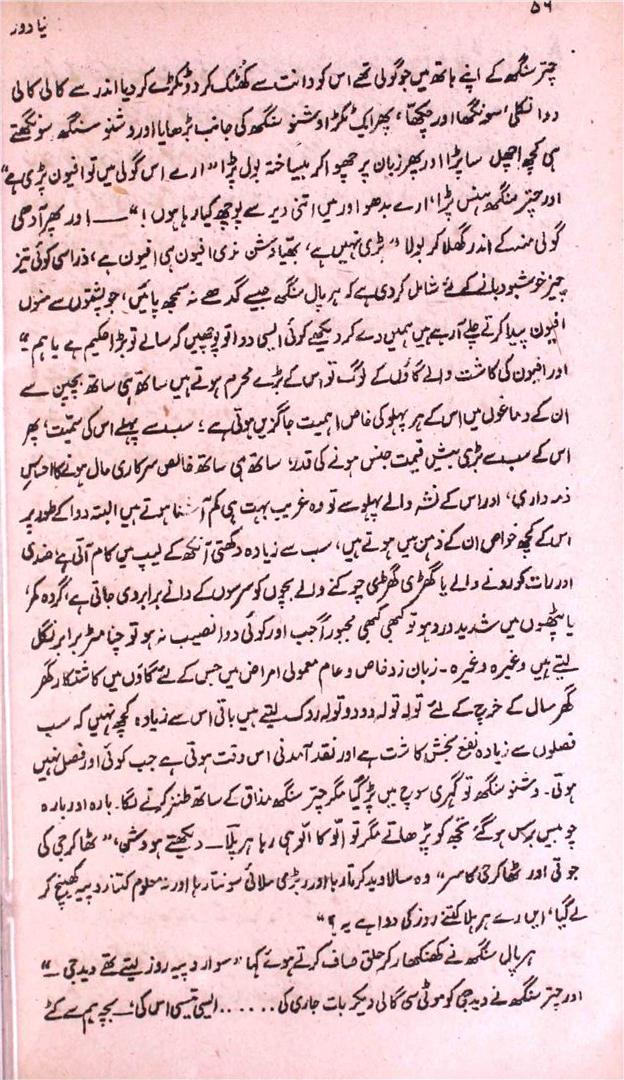 ۵۶
نیا دور
چتر سنگھ کے اپنے ہاتھ میں جو گولی تھے اس کو دانت سے کھٹک کر دو ٹکڑے کر دیا اندر سے کالی کالی
دوا نکلی، سونگھا اور چکھا، پھر ایک ٹکڑا وشنو سنگھ کی جانب بڑھایا اور وشنو سنگھ سونگھتے
ہی کچھ اچھل سا پڑا اور پھر زبان پر چھوا کر بیساختہ بول پڑا "ارے اس گولی میں تو افیون پڑی ہے"
اور چتر سنگھ ہنس پڑا، ارے بدھو اور میں اتنی دیر سے پوچھ کیا رہا ہوں!" — اور پھر آدھی
گولی منہ کے اندر گھلا کر بولا "پڑی نہیں ہے، بھیّا وشن نری افیون ہی افیون ہے، ذرا سی کوئی تیز
چیز خوشبو دبانے کے لئے شامل کر دی ہے کہ ہر پال سنگھ جیسے گدھے نہ سمجھ پائیں، جو پشتوں سے منوں
افیون پیدا کرتے چلے آرہے ہیں ہمیں دے کر دیکھے کوئی ایسی دوا تو پوچھیں کہ سالے تو بڑا حکیم ہے یا ہم"
اور افیون کی کاشت والے گاؤں کے لوگ تو اس کے بڑے محرم ہوتے ہیں ساتھ ہی ساتھ بچپن سے
ان کے دماغوں میں اس کے ہر پہلو کی خاص اہمیت جاگزیں ہوتی ہے؛ سب سے پہلے اس کی سمیّت، پھر
اس کے سب سے بڑی بیش قیمت جنس ہونے کی قدر، ساتھ ہی ساتھ خالص سرکاری مال ہونے کا احساسِ
ذمہ داری، اور اس کے نشہ والے پہلو سے تو وہ غریب بہت ہی کم آشنا ہوتے ہیں البتہ دوا کے طور پر
اس کے کچھ خواص ان کے ذہن میں ہوتے ہیں، سب سے زیادہ دکھتی آنکھ کے لیپ میں کام آتی ہے، ضدی
اور رات کو رونے والے یا گھڑی گھڑی چوکنے والے بچوں کو سرسوں کے دانے برابر دی جاتی ہے، گردہ کمر،
یا پٹھوں میں شدید درد ہو تو کبھی کبھی مجبوراً جب اور کوئی دوا نصیب نہ ہو تو چنا مٹر برابر نگل
لیتے ہیں وغیرہ وغیرہ۔ زبان زد خاص و عام معمولی امراض میں جس کے لئے گاؤں میں کاشتکار گھر
گھر سال کے خرچ کے لئے تولہ تولہ دو دو تولہ روک لیتے ہیں باقی اس سے زیادہ کچھ نہیں کہ سب
فصلوں سے زیادہ نفع بخش کاشت ہے اور نقد آمدنی اس وقت ہوتی ہے جب کوئی اور فصل نہیں
ہوتی۔ وشنو سنگھ تو گہری سوچ میں پڑ گیا مگر چتر سنگھ مذاق کے ساتھ طنز کرنے لگا۔ بارہ اور بارہ
چوبیس برس ہوگئے تجھ کو پڑھاتے مگر تو الّو کا الّو ہی رہا ہرپلّا — دیکھتے ہو وشن، "ٹھاکر جی کی
جوتی اور ٹھاکر جی کا سر" وہ سالا وید کرتا رہا اور ربڑی ملائی سونتا رہا اور نہ معلوم کتنا روپیہ کھینچ کر
لے گیا، ایں رے ہرپلا کتنے روز کی دوا ہے یہ؟"
ہر پال سنگھ نے کھنکھار کر حلق صاف کرتے ہوئے کہا "سوا روپیہ روز لیتے تھے وید جی۔"
اور چتر سنگھ نے وید جی کو موٹی سی گالی دیکر بات جاری کی ...... ایسی تیسی اس کی؛ بچہ ہم سے کٹے